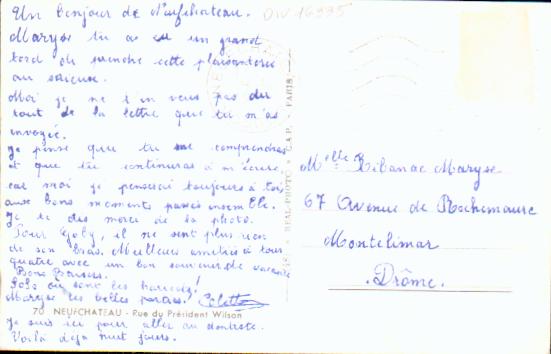 Un bonjour de Neufchateau.
Maryse tu as eu un grand
tord de prendre cette plaisanterie
au sérieuse.
Moi je ne t'en veux pas du
tout de la lettre que tu m'as
envoyée.
Je pense que tu me comprendras
et que tu continueras à m'écrire
car moi je penserai toujours à toi
aux bons moments passés ensemble.
Je te des merci de la photo.
Pour Goby, il ne sent plus rien
de son bras. Meilleurs amitiés à tous
quatre avec un bon souvenir de vacance
Bons Baisers.
Polo où sont les haricots!
Maryse les belles parties! Colette
70 NEUFCHATEAU - Rue du Président Wilson
Je suis ici pour aller au dentiste.
Voilà déjà huit jours.
REAL-PHOTO C.A.P. PARIS
Melle Ribanac Maryse
67 Avenue de Rochemaure
Montelimar
Drôme.